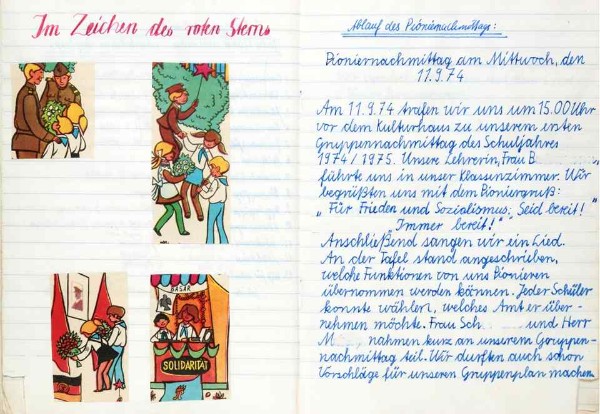 Im Zeichen des roten Sterns
BASAR
SOLIDARITÄT
Ablauf des Pioniernachmittags:
Pioniernachmittag am Mittwoch, den
11.9.74
Am 11.9.74 trafen wir uns um 15.00 Uhr
vor dem Kulturhaus zu unserem ersten
Gruppennachmittag des Schuljahres
1974/1975. Unsere Lehrerin, Frau B
führte uns in unser Klassenzimmer. Wir
begrüßten uns mit dem Pioniergruß:
„Für Frieden und Sozialismus: Seid bereit!"
„Immer bereit!"
Anschließend sangen wir ein Lied.
An der Tafel stand angeschrieben,
welche Funktionen von uns Pionieren
übernommen werden können. Jeder Schüler
konnte wählen, welches Amt er über-
nehmen möchte. Frau Sch. und Herr
M nahmen kurz an unserem Gruppen-
nachmittag teil. Wir durften auch schon
Vorschläge für unseren Gruppenplan machen.